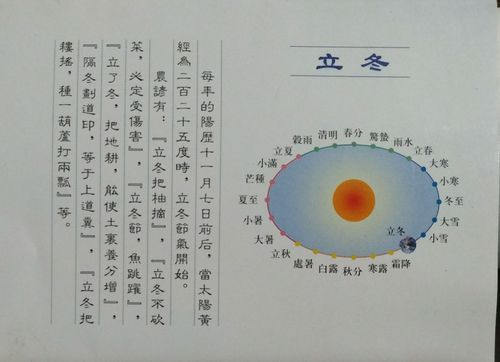 立冬
每年的陽歷十一月七日前后，當太陽黃
經為二百二十五度時，立冬節氣開始。
農諺有：『立冬把柚摘』，『立冬不砍
菜，必定受傷害』，『立冬節，魚跳躍』，
『立了冬，把地耕，能使土裏養分增』，
『隔冬劃道印，等于上道糞』，『立冬把
耬搖，種一葫蘆打兩瓢』等。
春分
驚蟄
雨水
立春
大寒
小寒
冬至
大雪
小雪
立冬
霜降
寒露
秋分
白露
處暑
立秋
大暑
小暑
夏至
芒種
小滿
立夏
穀雨
清明